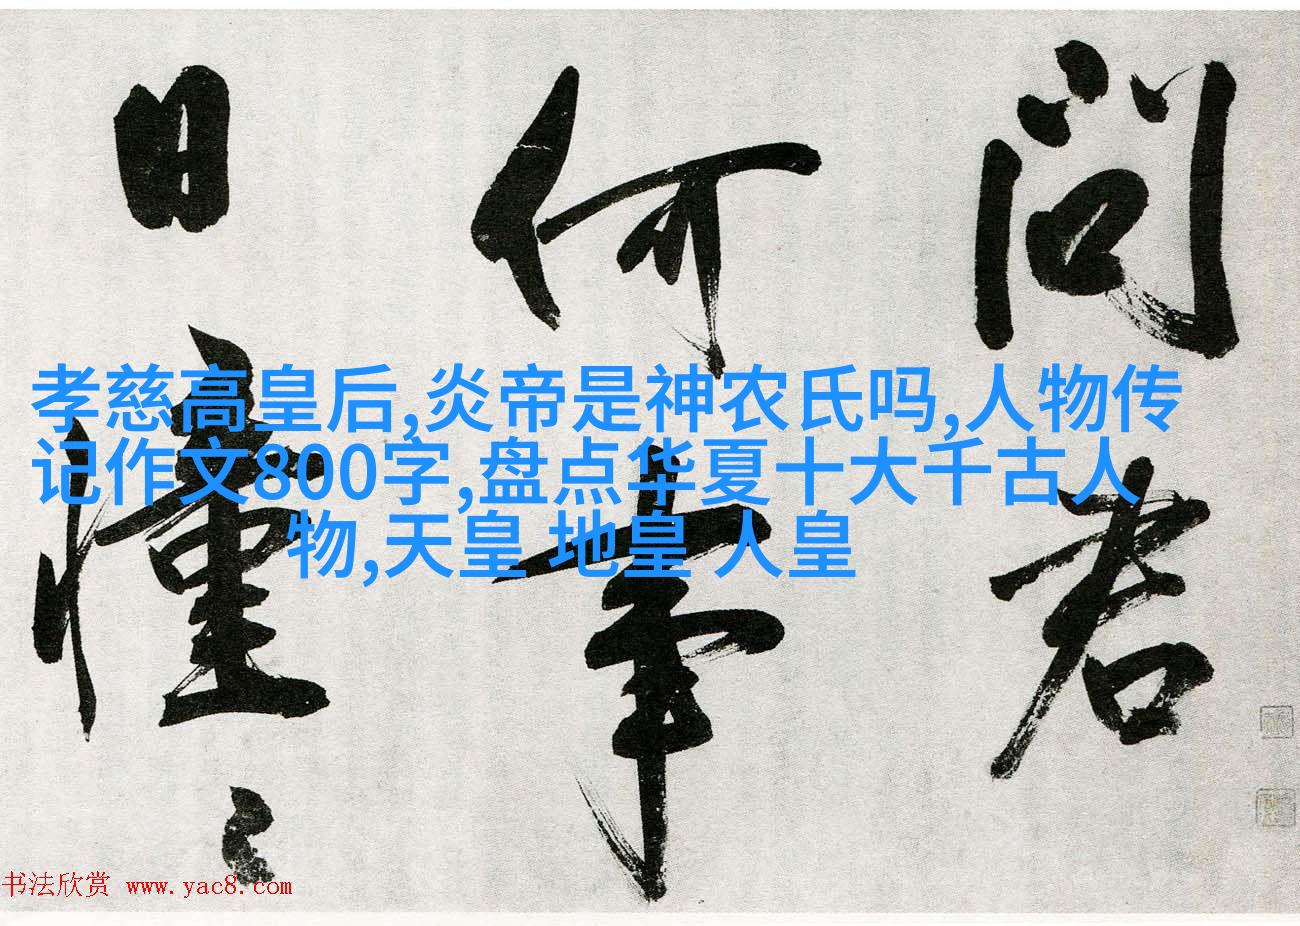 问君
何事
日憧〻
孝慈高皇后,炎帝是神农氏吗,人物传
记作文800字,盘点华夏十大千古人
物,天皇 地皇 人皇
书法欣赏 www.yac8.com